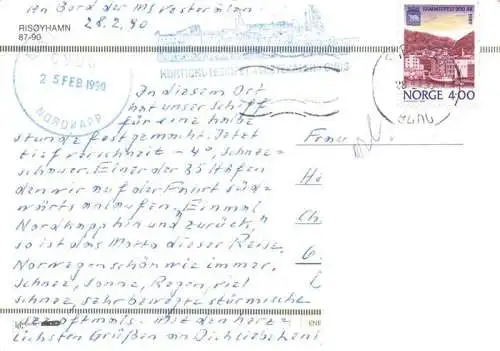 An Bord der MS Vesterålen
28.2.90
RISØYHAMN
87-90
25 FEB 1990
NORDKAPP
HAMMERFEST 200 ÅR
NORGE 4.00
In diesem Ort
hat unser Schiff
für eine halbe
stunde festgemacht. Jetzt
tief verschneit - 4°, Schnee-
schauer. Einer der 35 Häfen
den wir auf der Fahrt süd-
wärts anlaufen. "Einmal
Nordkapp hin und zurück,"
so ist das Motto dieser Reise.
Norwegen schön wie immer.
Schnee, Sonne, Regen, viel
Schnee, sehr bewegte stürmische
mit den herz-
lichsten Grüßen an Dich
Frau